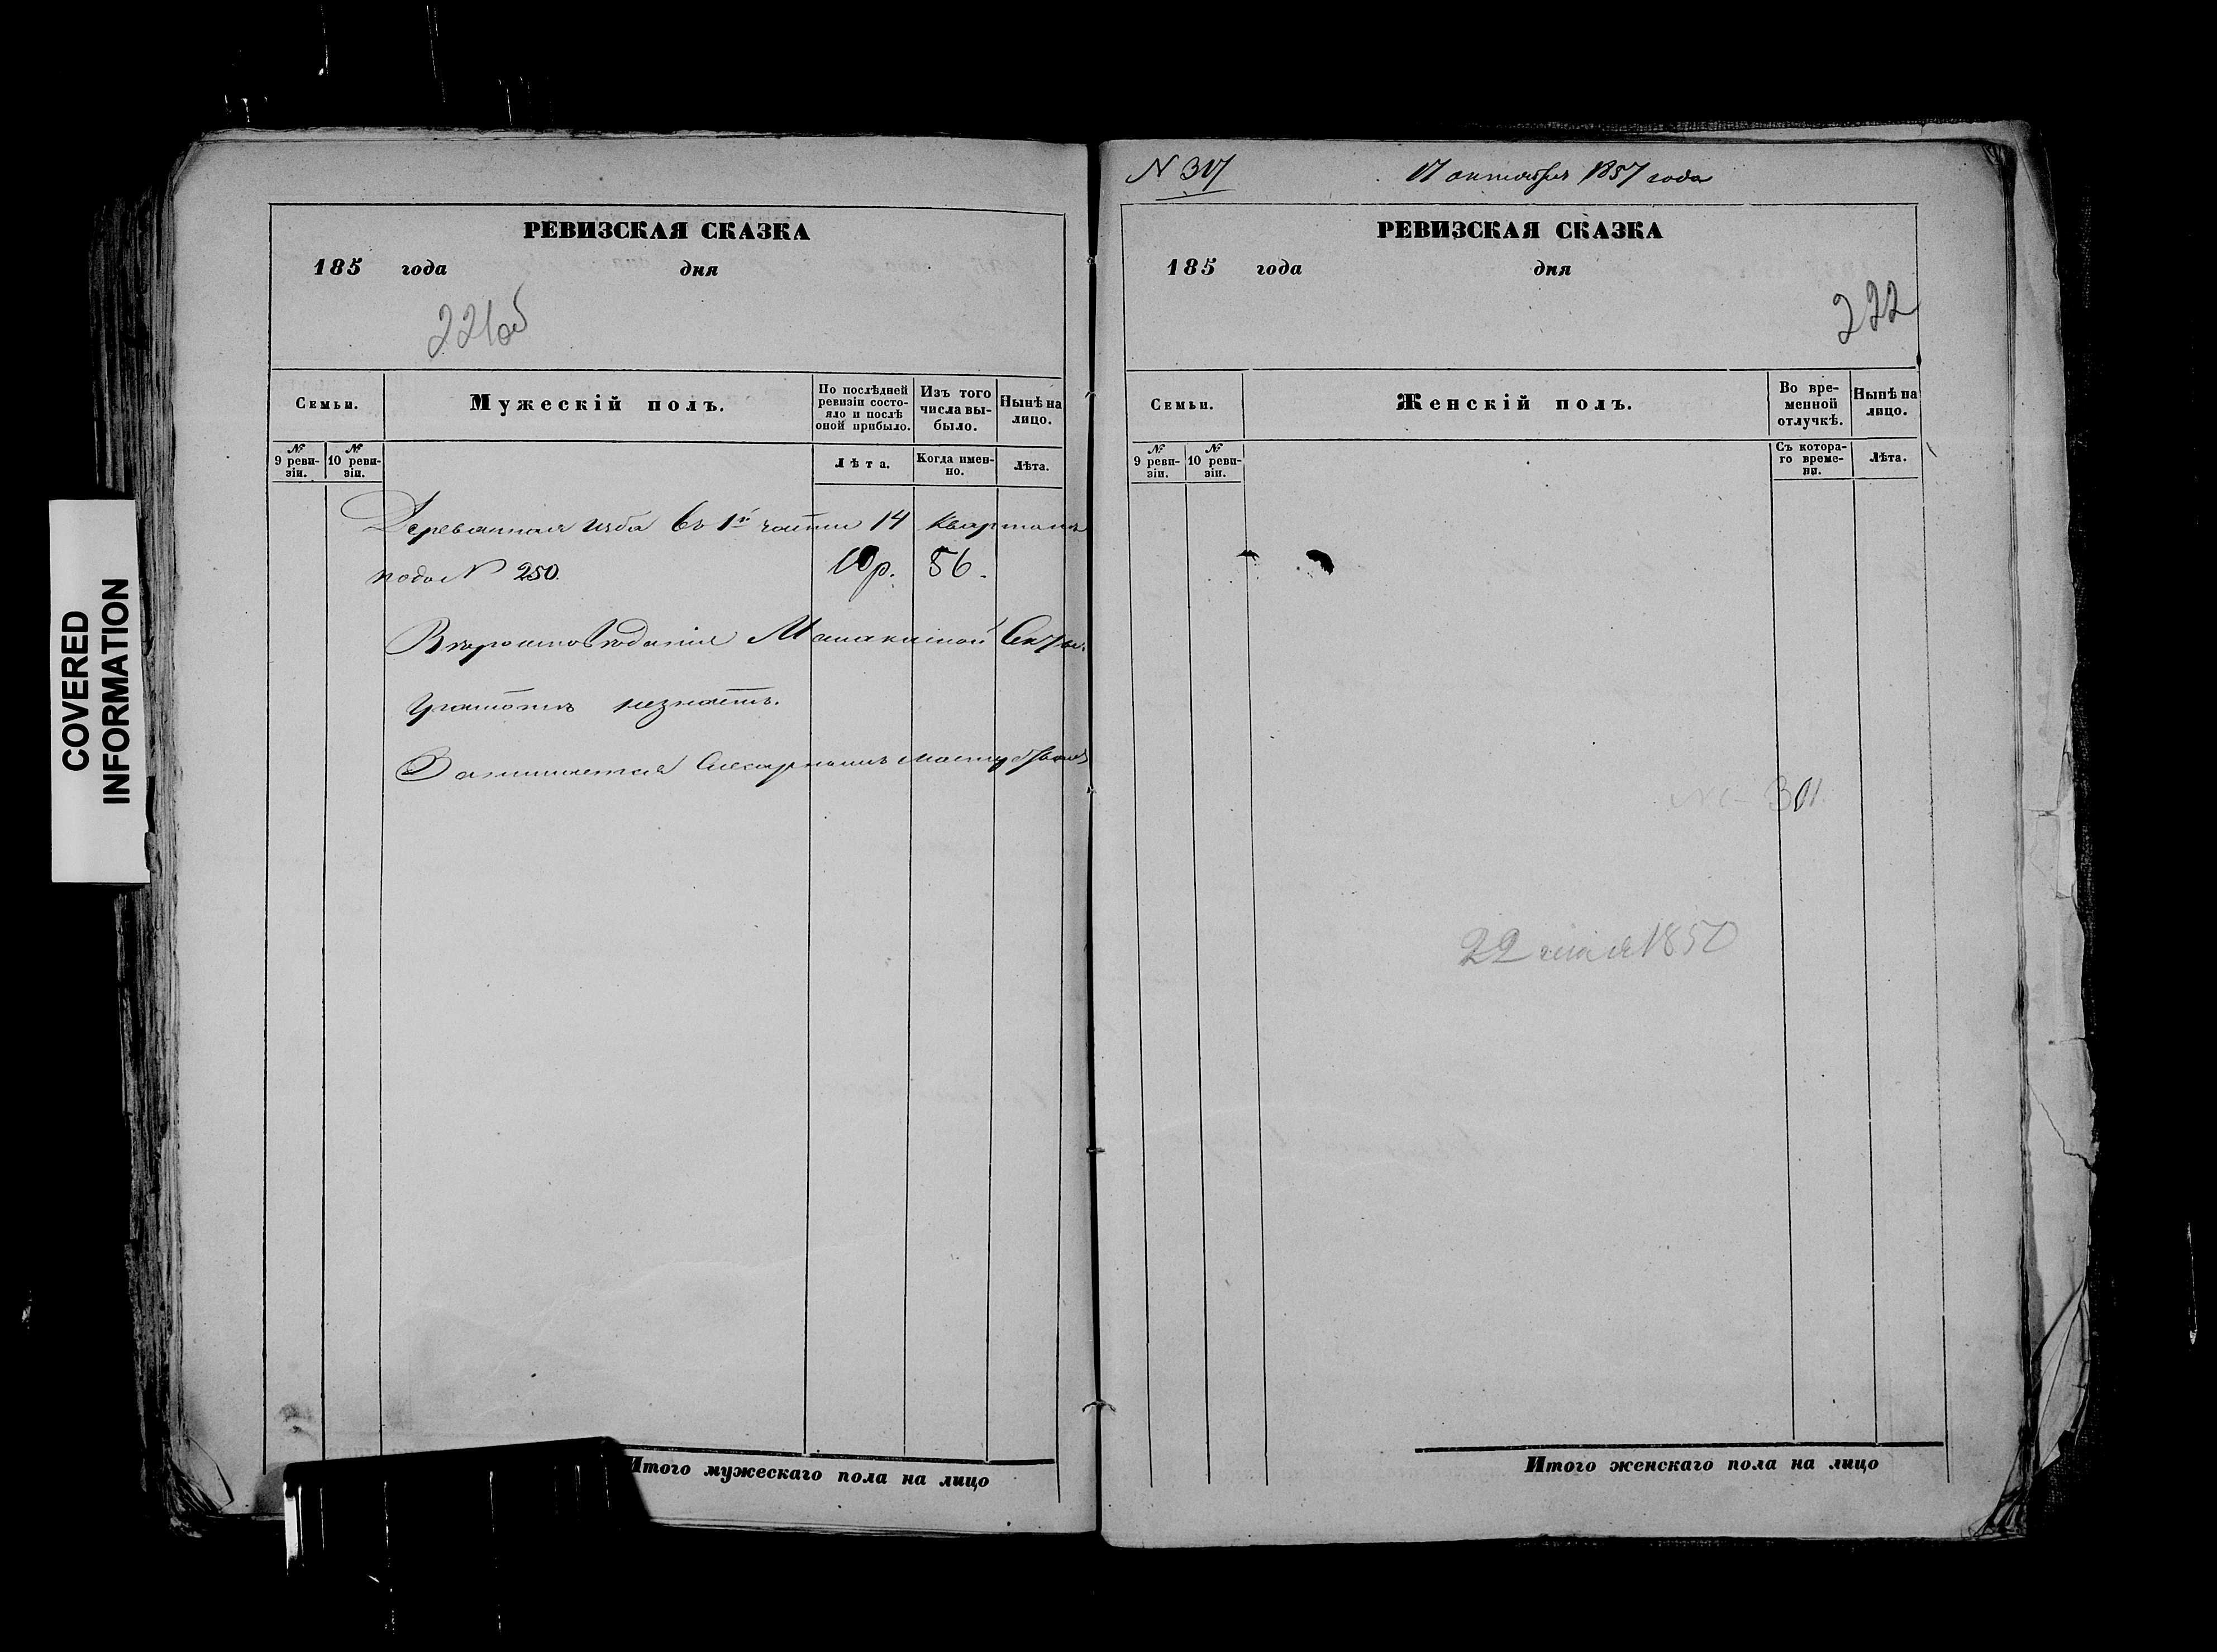 COVERED
INFORMATION
РЕВИЗСКАЯ СКАЗКА
185 года дня
221об
Семьи.
Мужескій полъ.
По послѣдней ревизіи состояло и послѣ оной прибыло.
Изъ того числа выбыло.
Нынѣ на лицо.
№ 9 ревизіи.
№ 10 ревизіи.
Лѣта.
Когда именно.
Лѣта.
Деревянная изба въ 1й части 14 квартала
подъ N 250. 10р. 56.
Вѣроисповѣданія Молоканской Секты.
Грамотѣ незнаетъ.
Занимается Слесарнымъ мастерствомъ
Итого мужескаго пола на лицо
N 317
17 октября 1857 года
РЕВИЗСКАЯ СКАЗКА
185 года дня
222
Семьи.
Женскій полъ.
Во временной отлучкѣ.
Нынѣ на лицо.
№ 9 ревизіи.
№ 10 ревизіи.
Съ котораго времени.
Лѣта.
22 мая 1850
Итого женскаго пола на лицо